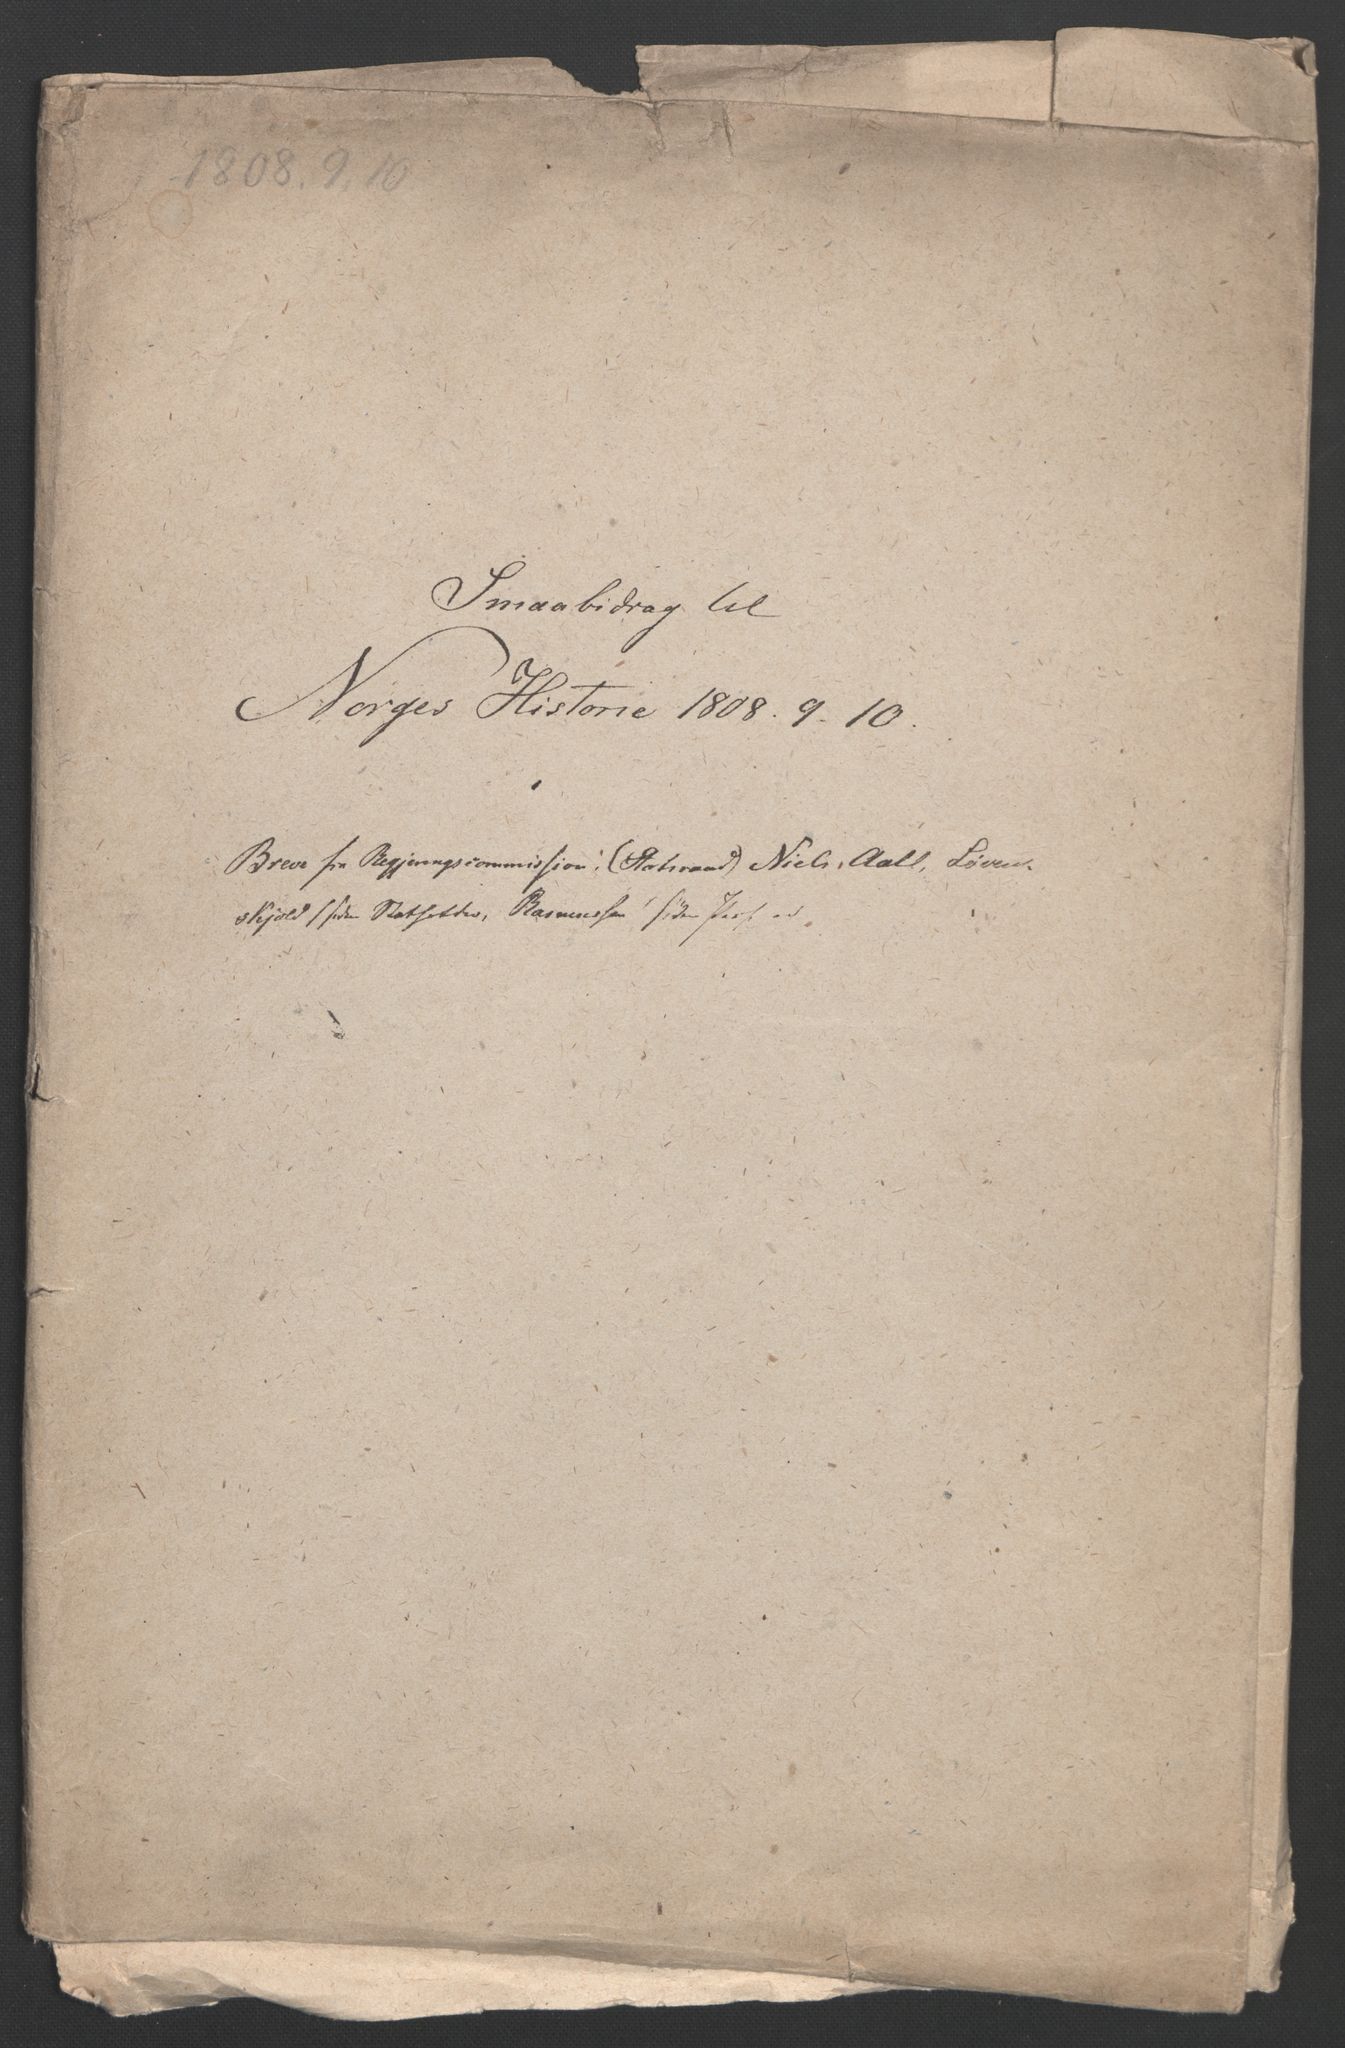 1808. 9. 10
Smaabidrag til
Norges Historie 1808. 9. 10.
Breve fra Regjeringscommission: (Statsraad) Niels Aall, Løven-
skjold (siden Statholder, Rasmussen siden